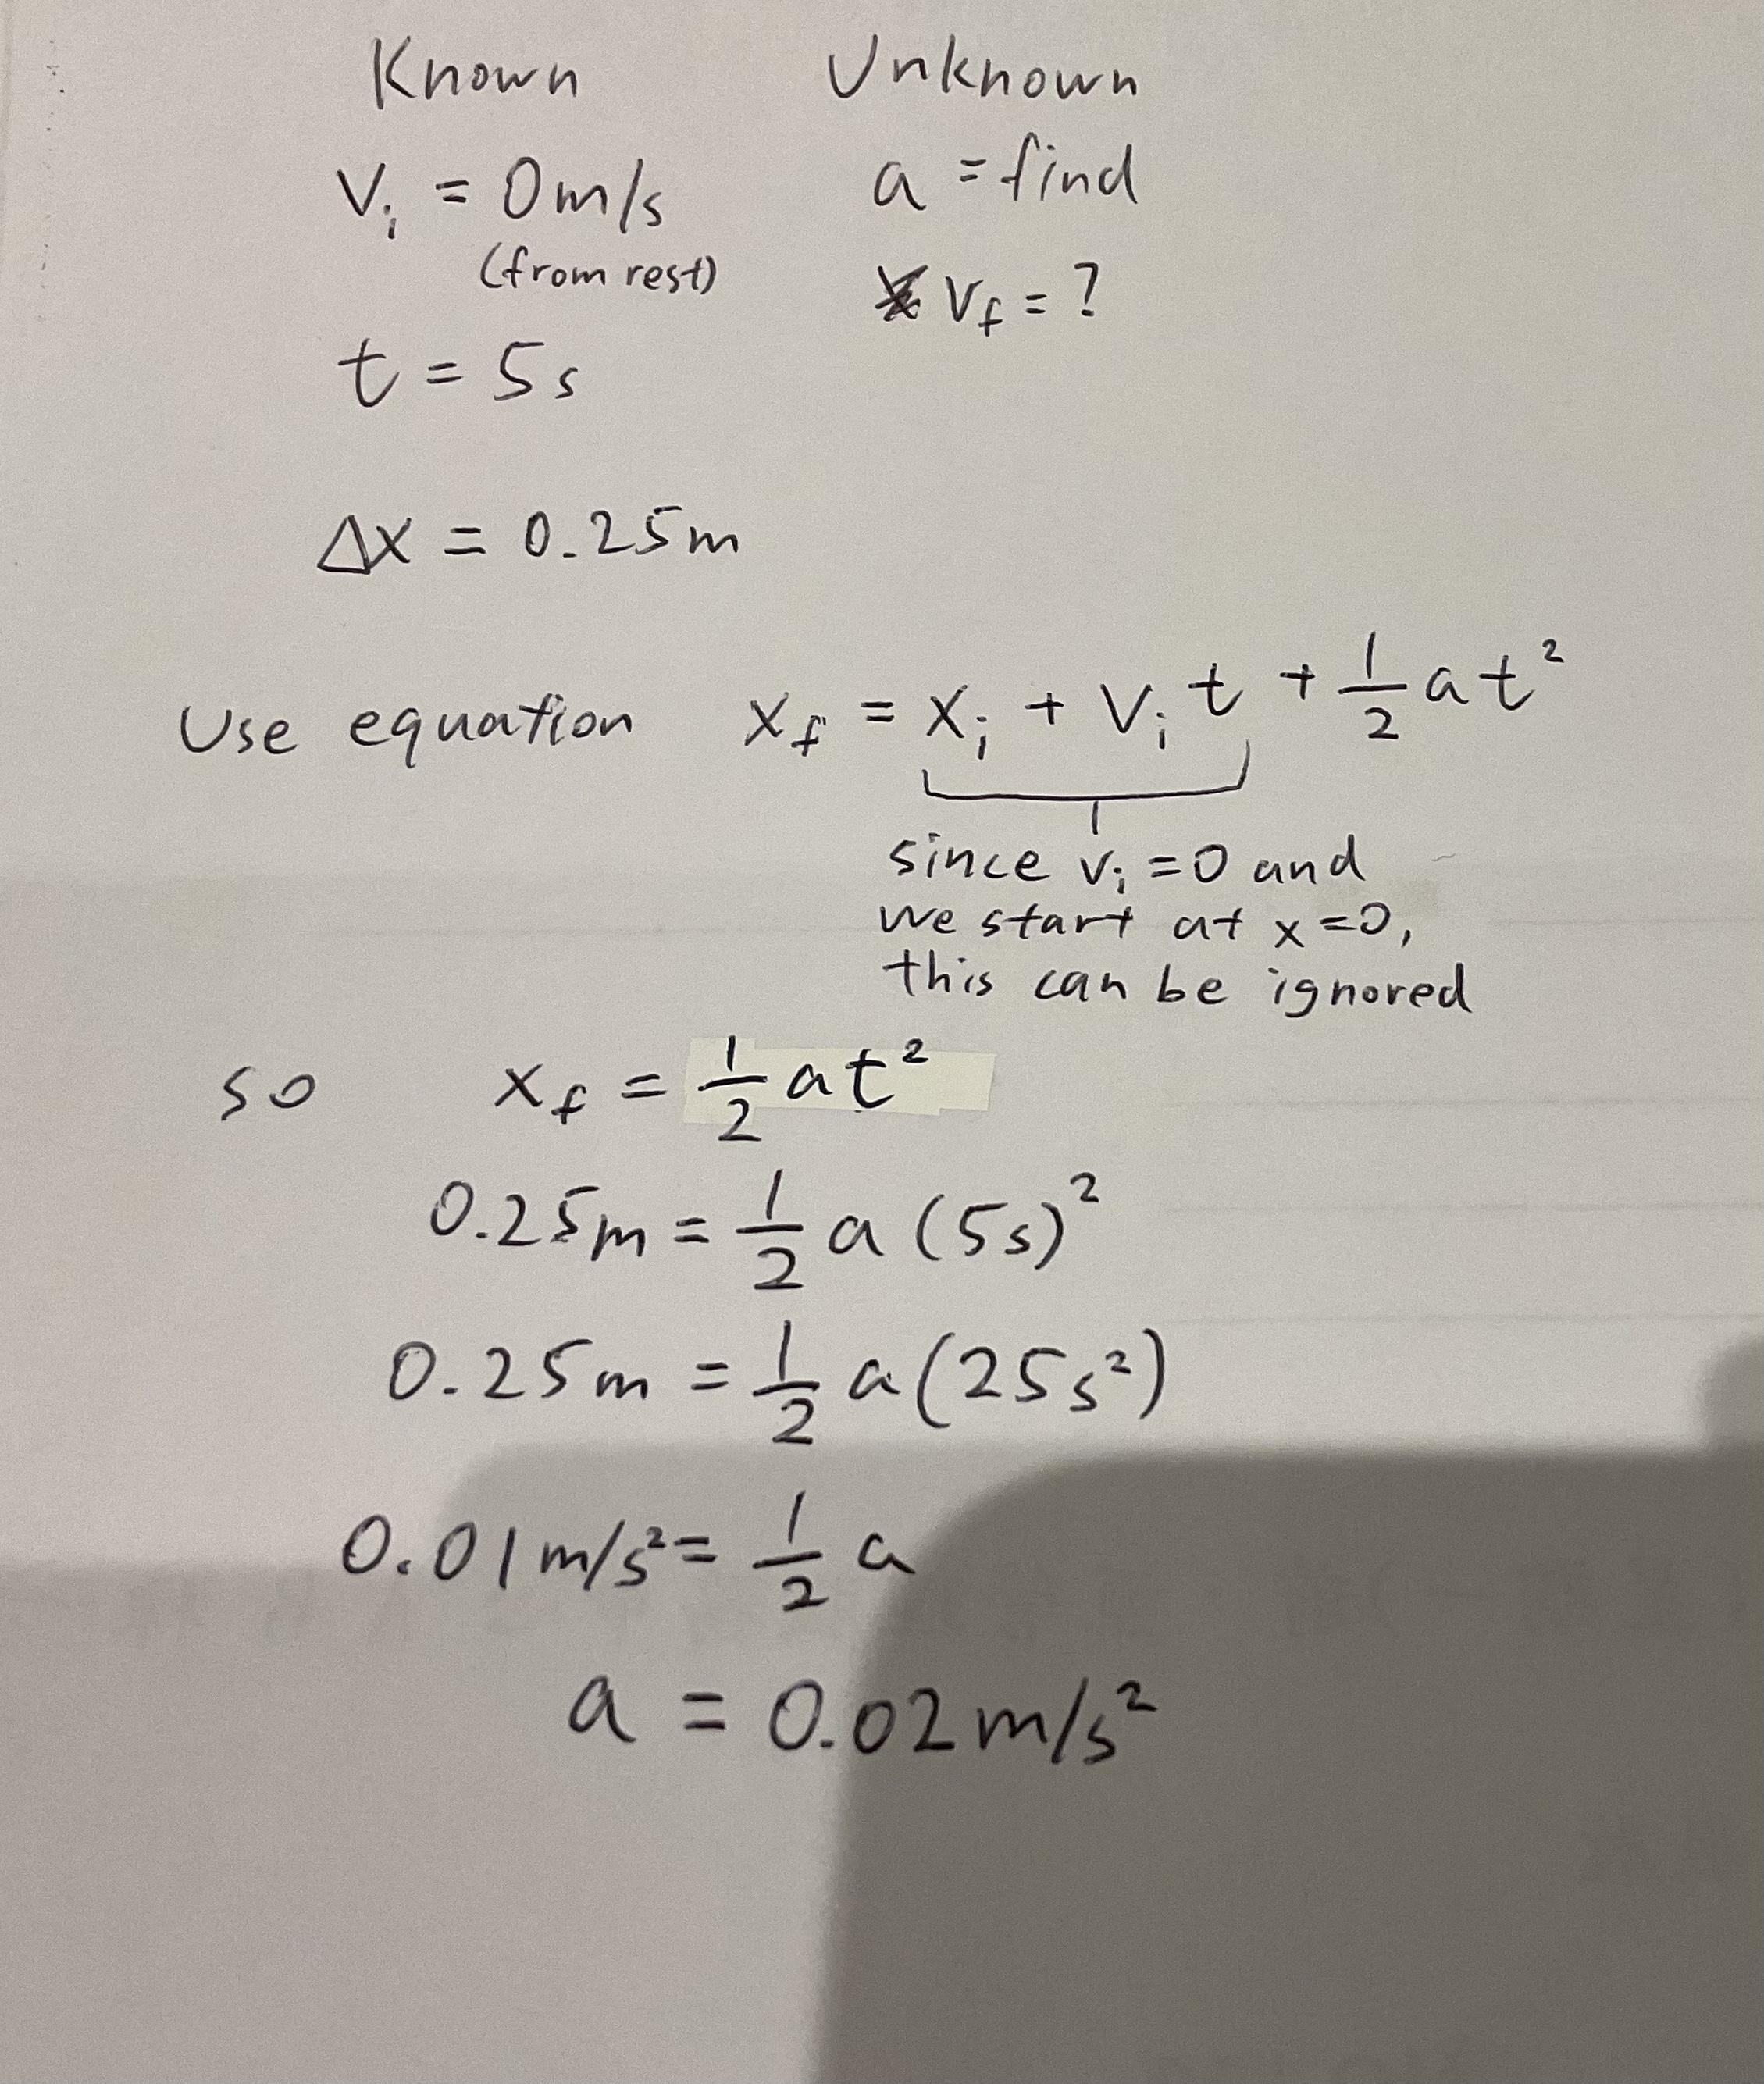 Known Unknown
vᵢ = 0 m/s a = find
(from rest) v_f = ?
t = 5 s
Δx = 0.25 m
Use equation x_f = xᵢ + vᵢ t + 1/2 a t²
since vᵢ = 0 and
we start at x = 0,
this can be ignored
so x_f = 1/2 a t²
0.25 m = 1/2 a (5 s)²
0.25 m = 1/2 a (25 s²)
0.01 m/s² = 1/2 a
a = 0.02 m/s²